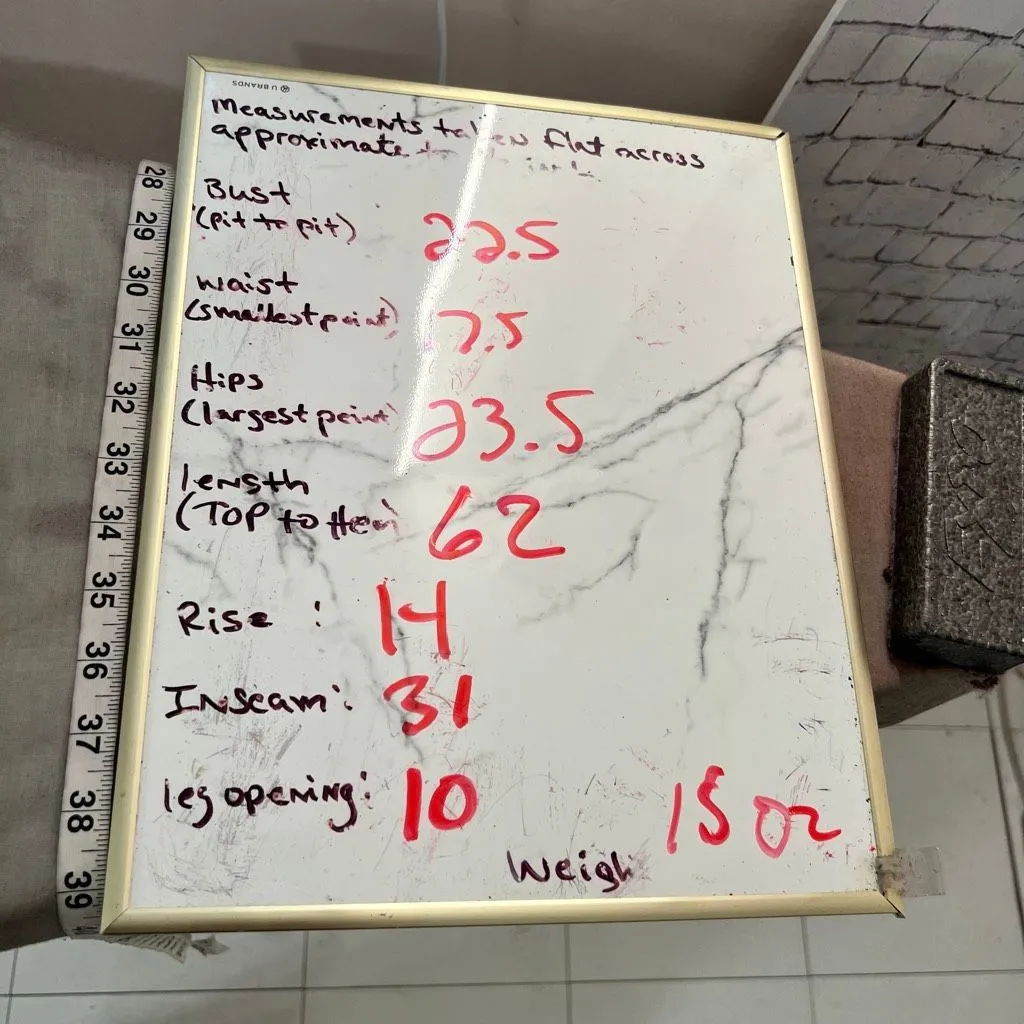 U BRANDS
Measurements taken flat across
approximate
Bust
(pit to pit) 22.5
waist
(smallest point) 7.5
Hips
(largest point) 23.5
length
(TOP to Hem) 62
Rise : 14
Inseam: 31
leg opening: 10
15 oz
Weigh
28
29
30
31
32
33
34
35
36
37
38
39